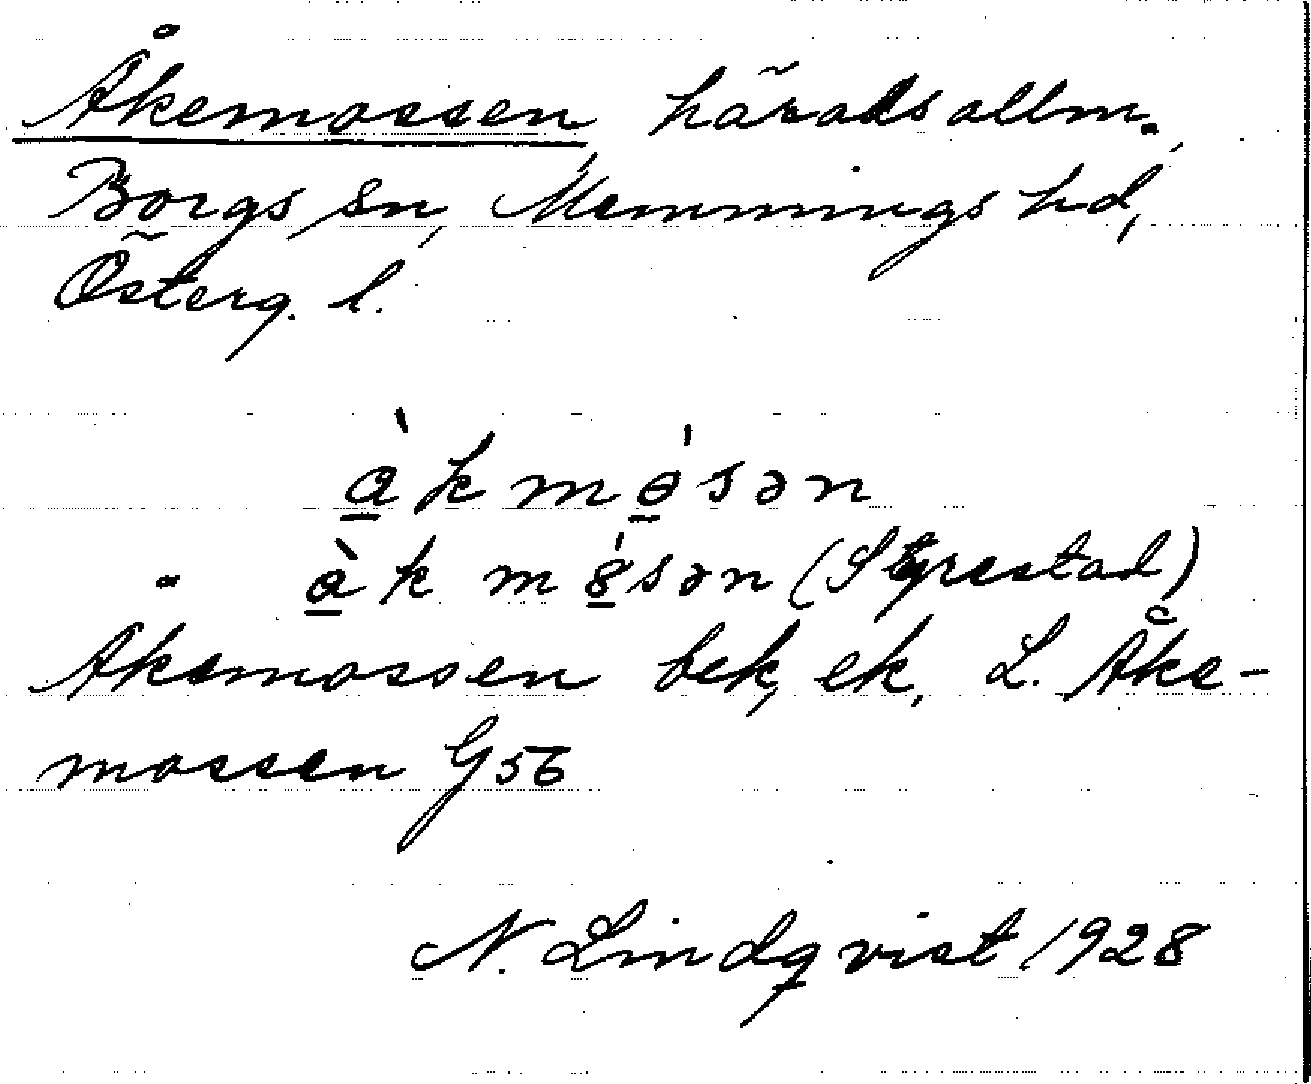 Åkemossen, häradsallm.,
Borgs sn, Memmings hd,
Österg. l.
à̱kmɵ̱́sən
à̱km8̱́sən (Styrestad)
Åkemossen bek, ek, L. Åke-
mossen G 56
N. Lindqvist 1928